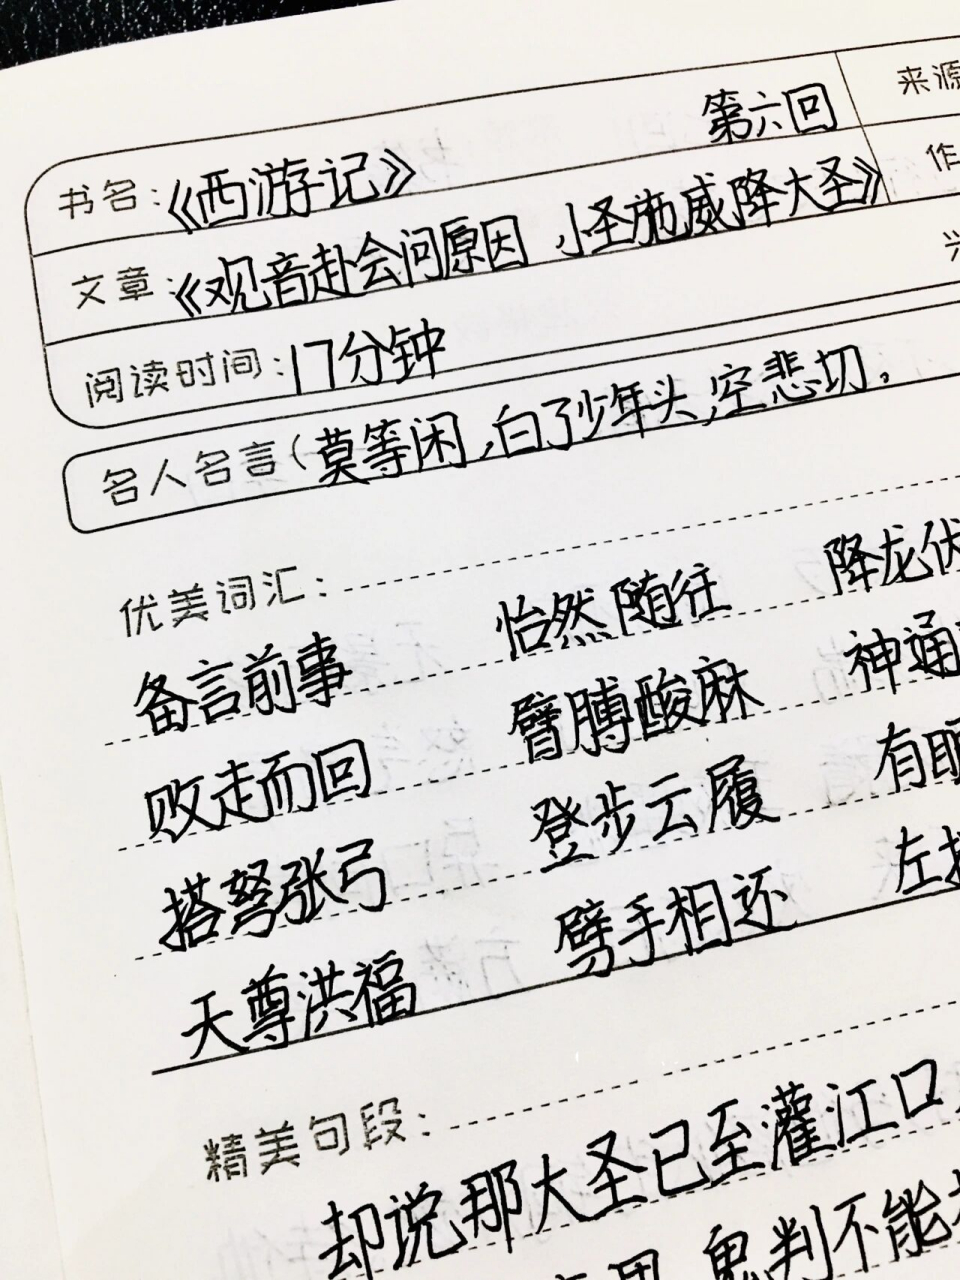 第六回 来源
书名：《西游记》 作
文章：《观音赴会问原因 小圣施威降大圣》
阅读时间：17分钟
名人名言（莫等闲，白了少年头，空悲切，
优美词汇：
备言前事 怡然随往 降龙伏
败走而回 臂膊酸麻 神通
搭弩张弓 登步云履 有眼
天尊洪福 劈手相还 左
精美句段：
却说那大圣已至灌江口
鬼判不能